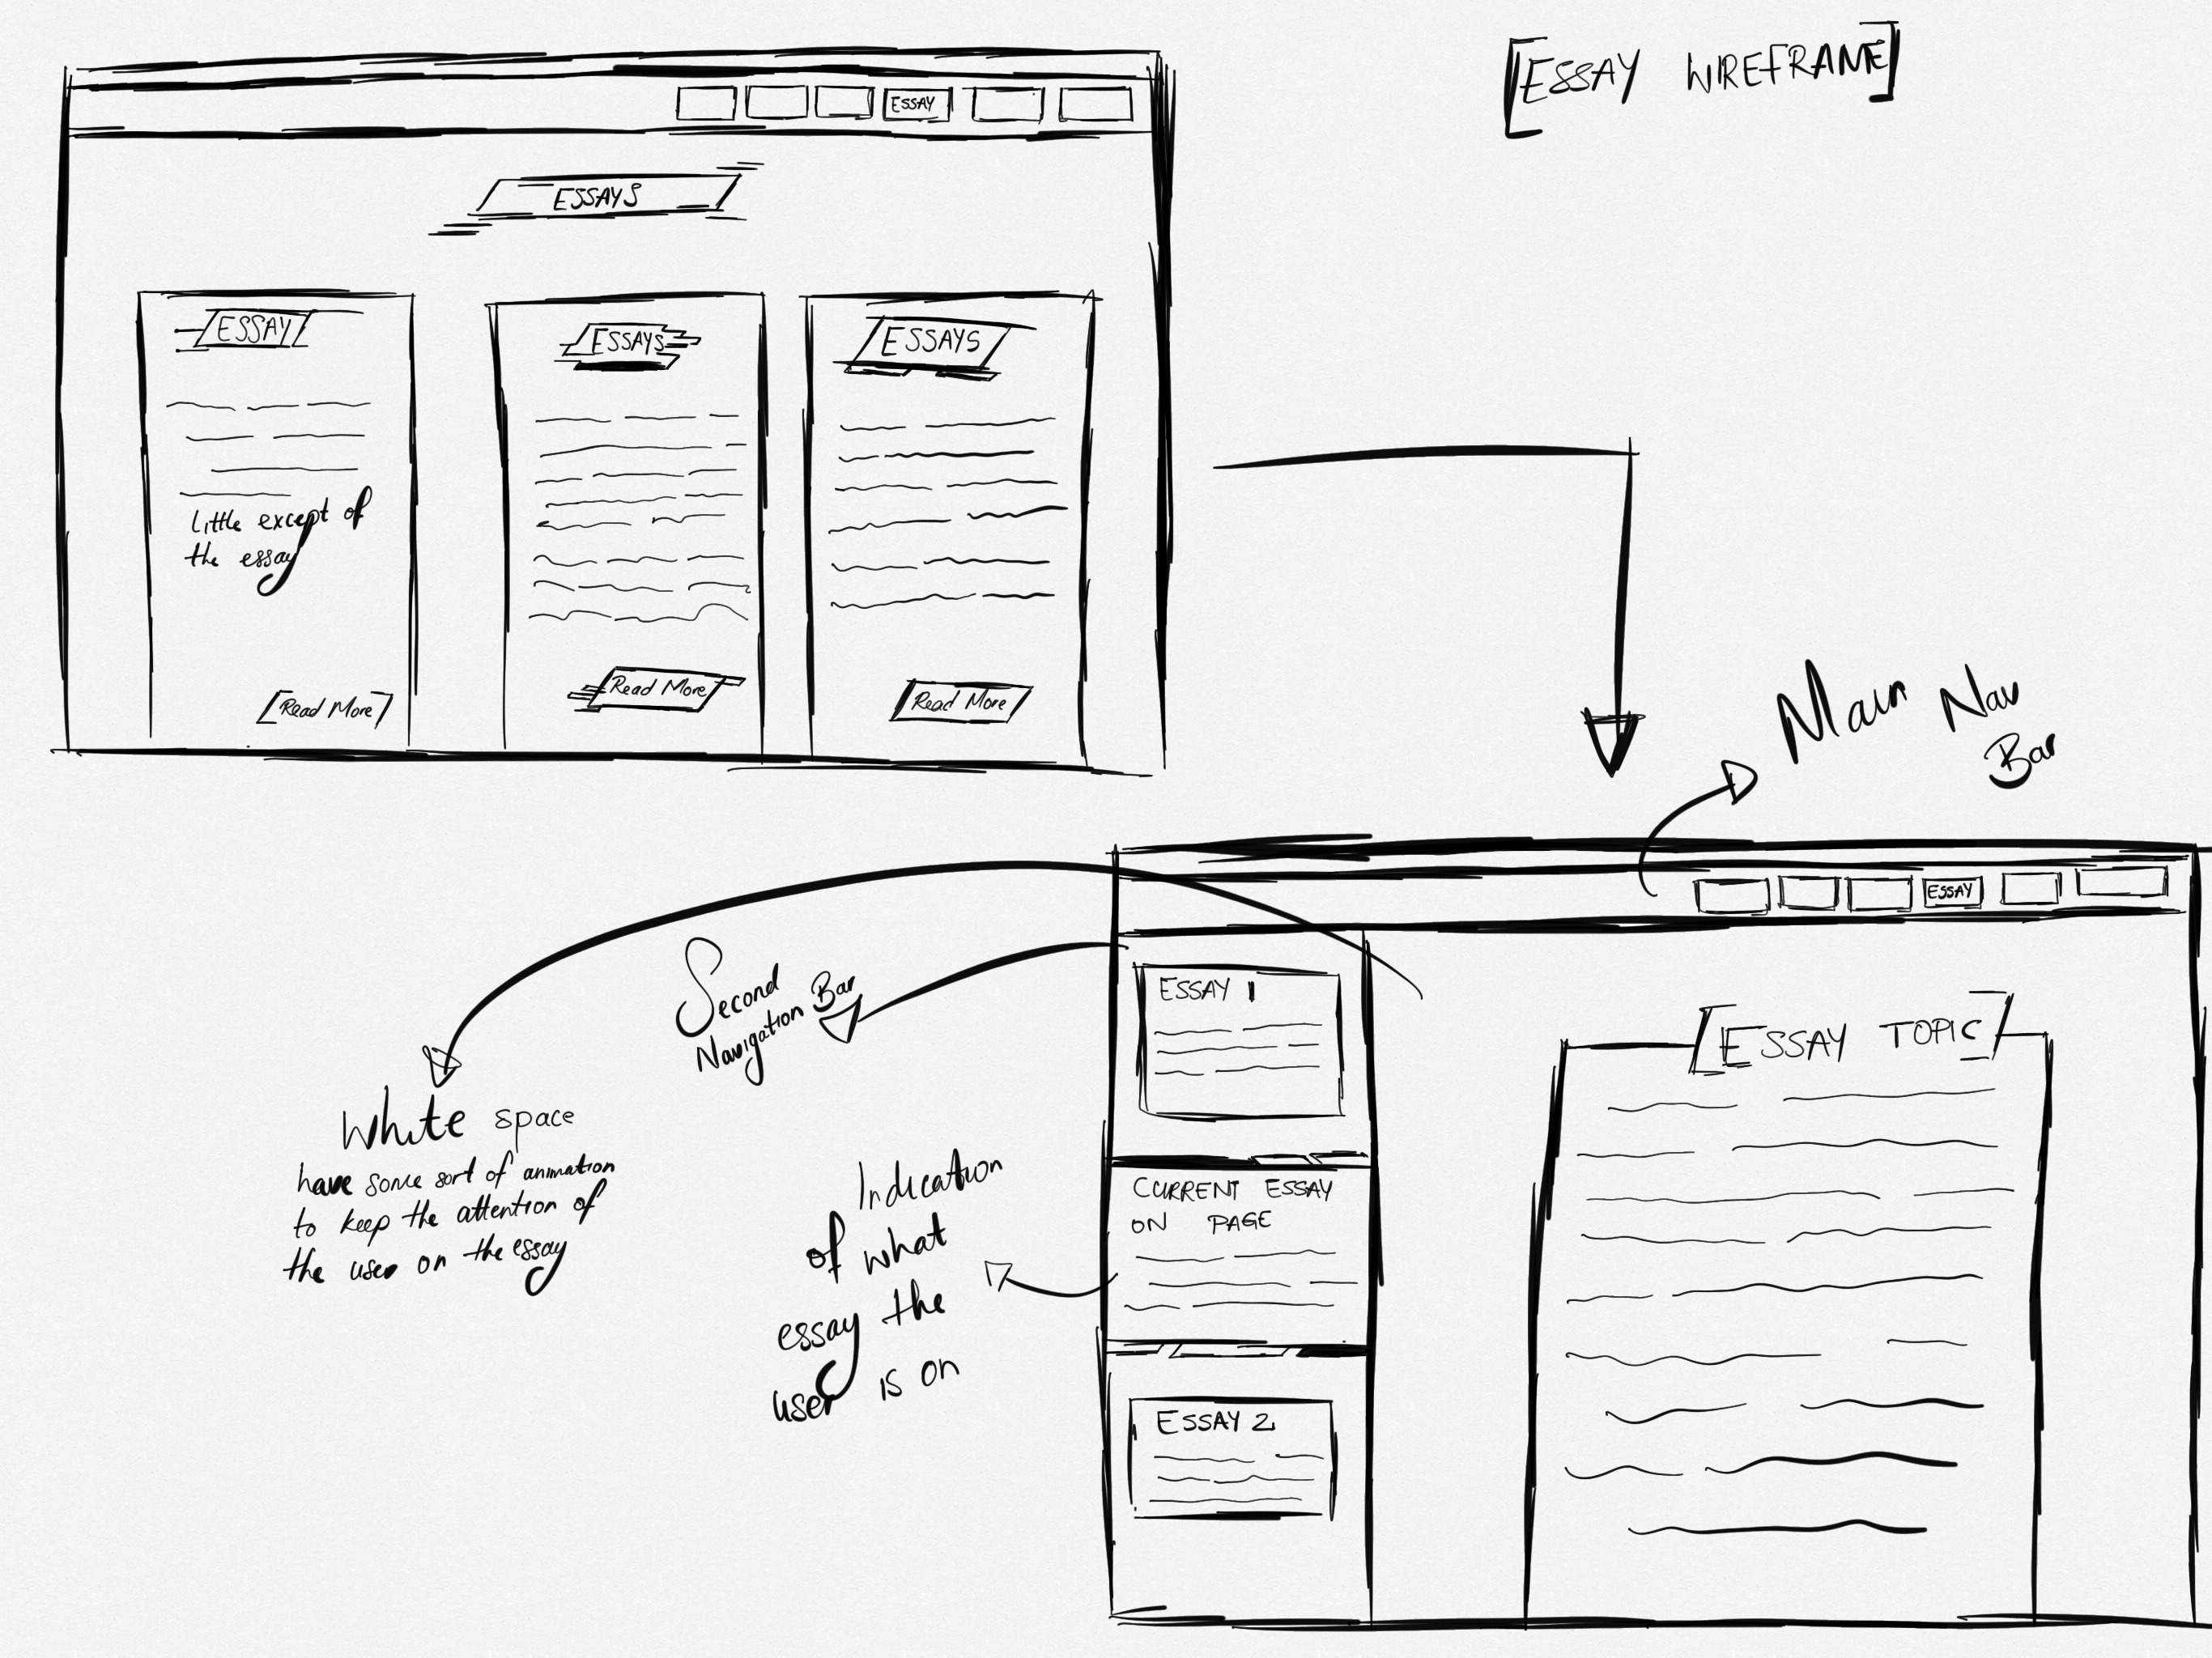 [ESSAY WIREFRAME]
ESSAY
ESSAYS
ESSAY
little except of
the essay
[Read More]
ESSAYS
Read More
ESSAYS
Read More
Main Nav
Bar
ESSAY
Second
Navigation Bar
White space
have some sort of animation
to keep the attention of
the user on the essay
Indication
of what
essay the
user is on
ESSAY 1
CURRENT ESSAY
ON PAGE
ESSAY 2
[ESSAY TOPIC]